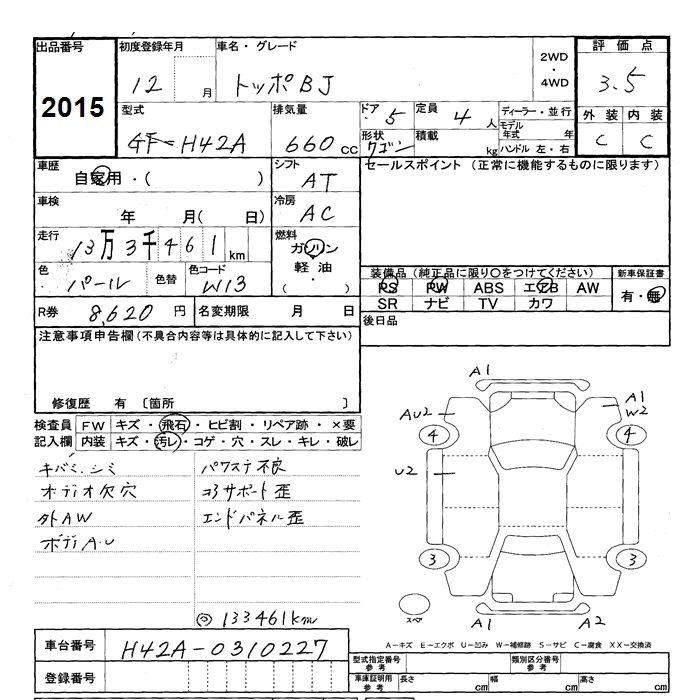 出品番号
2015
初度登録年月
12 月
車名・グレード
トッポBJ
2WD
・
4WD
評価点
3.5
外装 内装
C C
型式
GF-H42A
排気量
660 cc
ドア 5
形状
ワゴン
定員 4 人
積載 kg
ディーラー・並行
モデル年式 年
ハンドル 左・右
車歴
自家用・( )
シフト
AT
セールスポイント (正常に機能するものに限ります)
車検
年 月( 日)
冷房
AC
走行
13万3千461 km
燃料
ガソリン
軽油・
( )
色
パール
色替
色コード
W13
装備品 (純正品に限り○をつけてください)
PS PW ABS エアB AW
SR ナビ TV カワ
新車保証書
有・無
R券 8,620 円
名変期限 月 日
後日品
注意事項申告欄 (不具合内容等は具体的に記入して下さい)
修復歴 有 〔箇所 〕
検査員
記入欄
FW キズ・飛石・ヒビ割・リペア跡・×要
内装 キズ・汚レ・コゲ・穴・スレ・キレ・破レ
キバミ.シミ
オーディオ欠穴
外AW
ボディA.U
パワステ不良
ヨコサポート歪
エンドパネル歪
◎ 133461km
A1
A1
W2
AU2
4
4
U2
3
3
スペア
A1
A2
A-キズ E-エクボ U-凹み W-補修跡 S-サビ C-腐食 XX-交換済
車台番号
H42A-0310227
登録番号
型式指定番号
参考
類別区分番号
参考
車庫証明用
参考
長さ cm
幅 cm
高さ cm